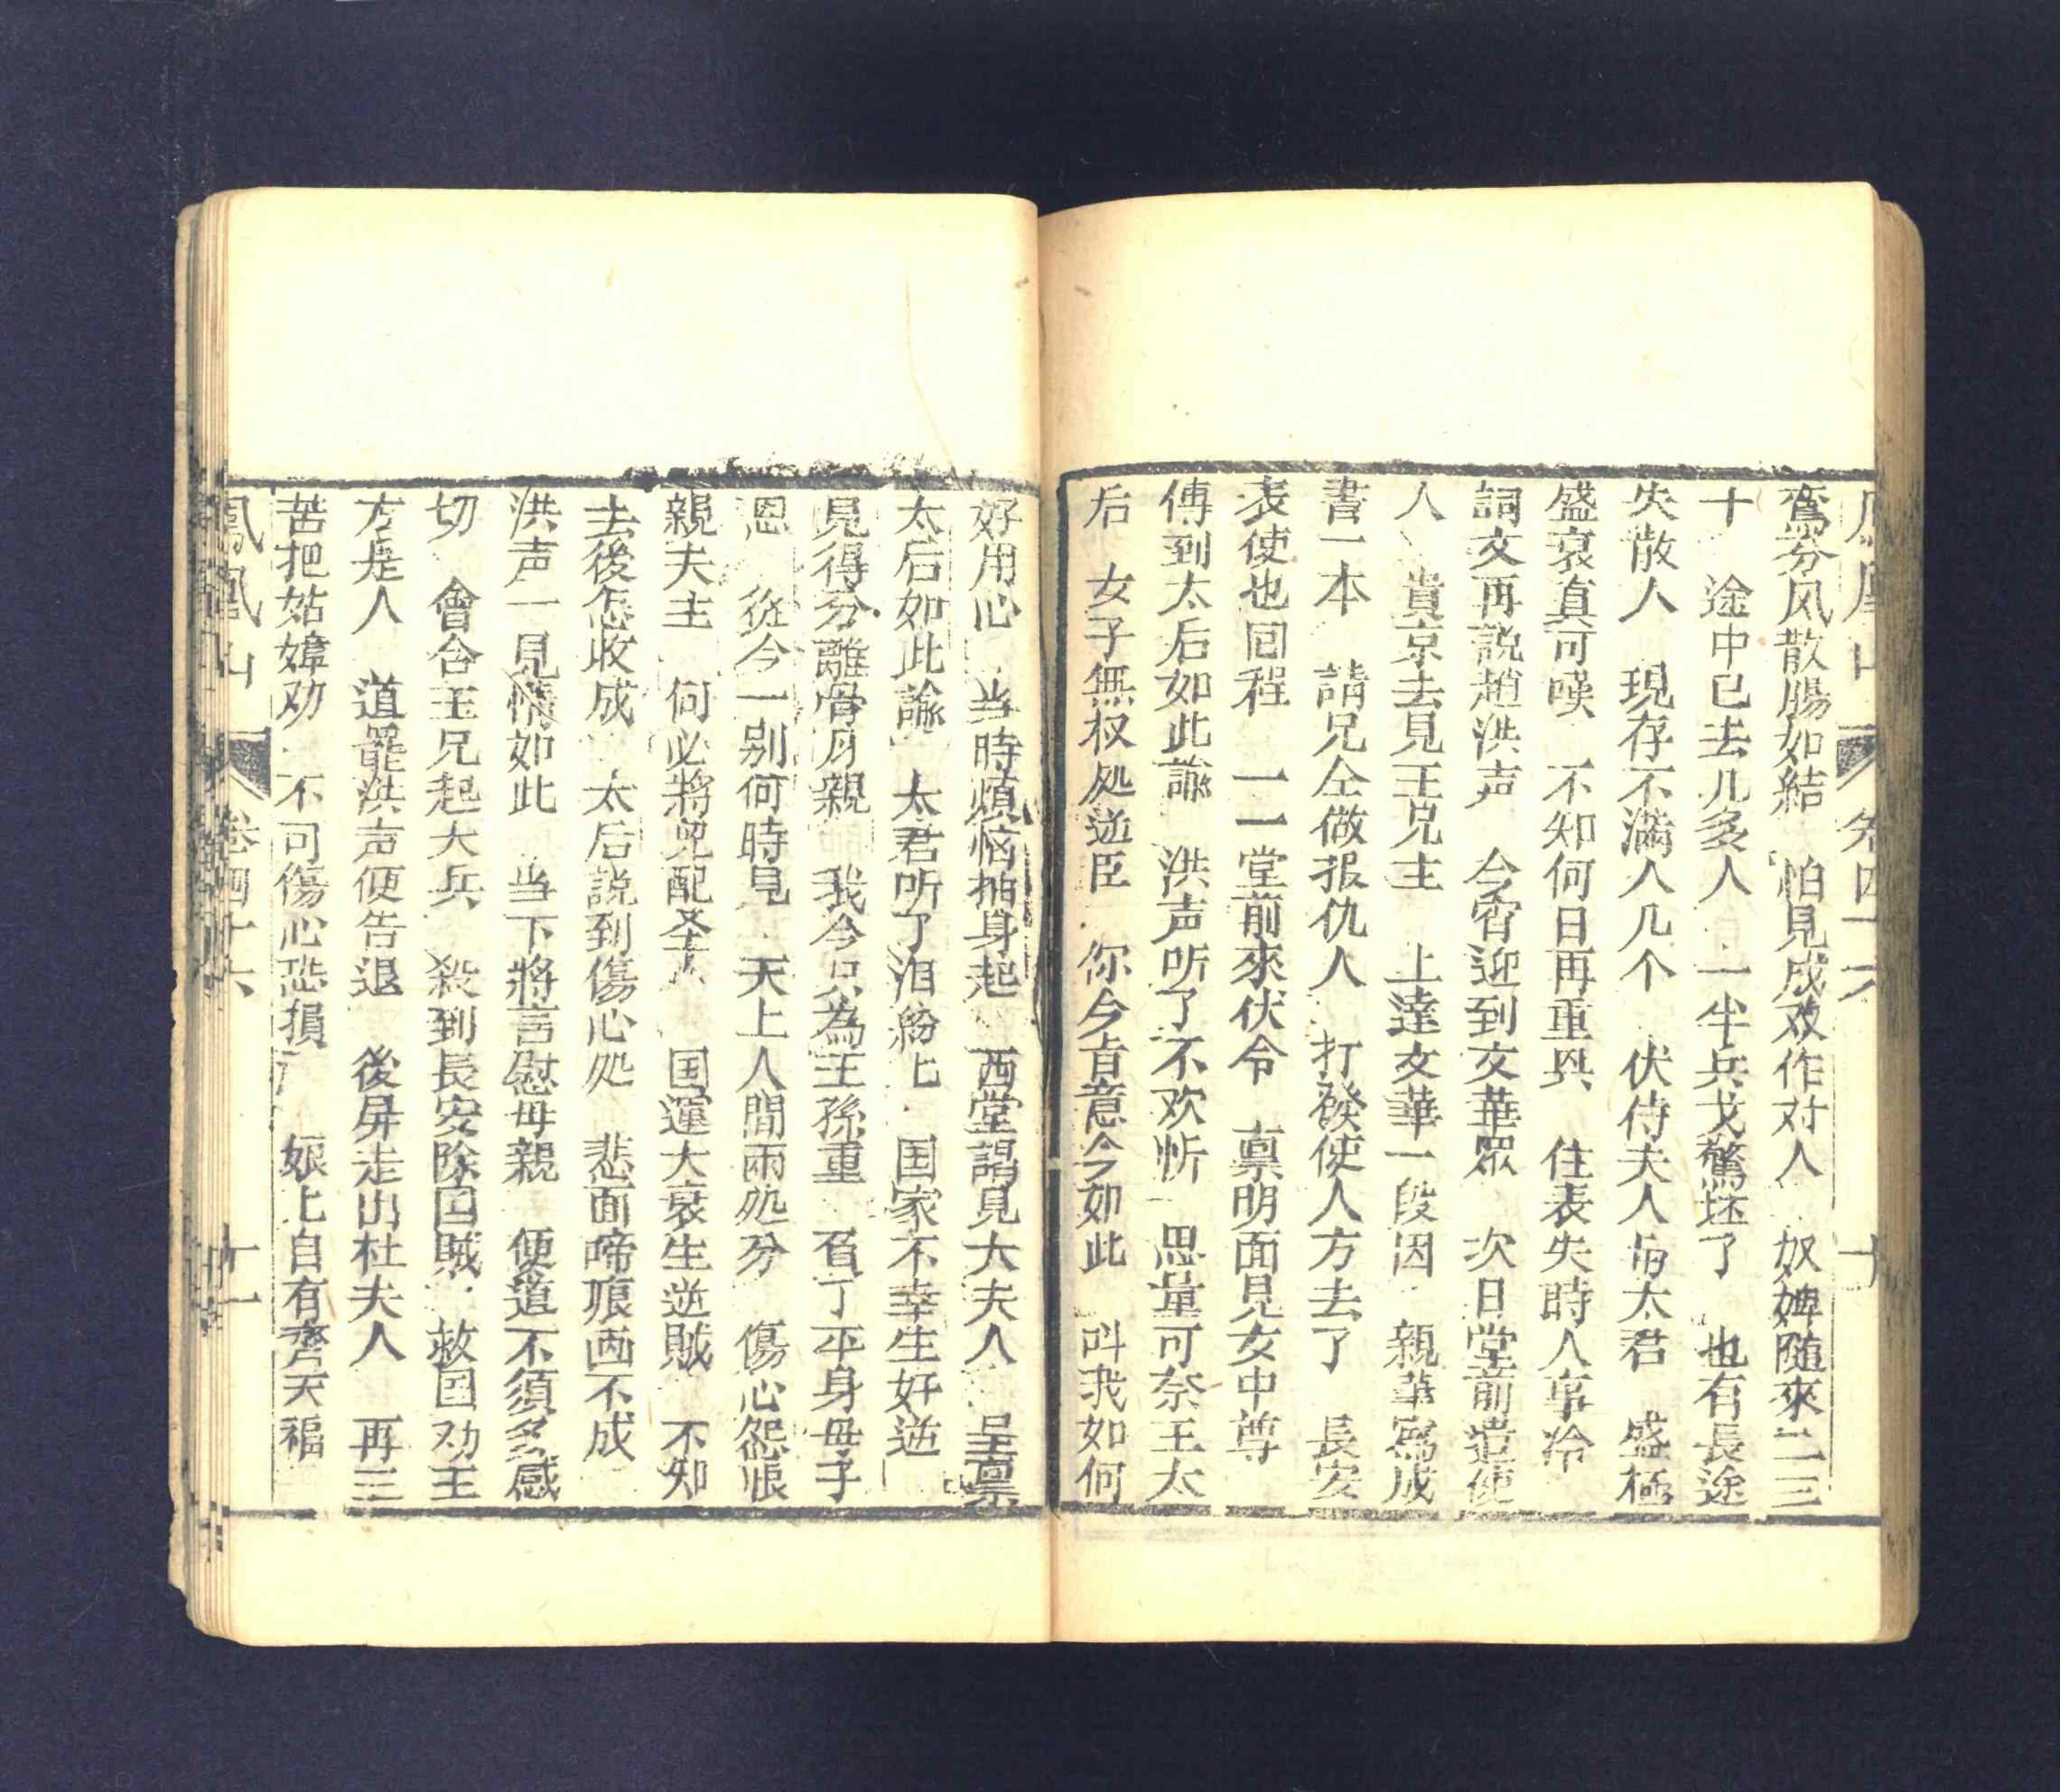 鸞分风散腸如結 怕見成双作对人 奴婢随來二三
十 途中已去几多人 一半兵戈驚坯了 也有長途
失散人 現存不滿人几个 伏侍夫人与太君 盛極
盛衰真可嘆 不知何日再重興 住表失時人事冷
詞文再説趙洪声 今宵迎到文華眾 次日堂前遣使
人 貴京去見王兄主 上達文華一段因 親筆寫成
書一本 請兄仝做报仇人 打發使人方去了 長安
表使也回程 一一堂前來伏令 禀明面見女中尊
傳到太后如此諭 洪声听了不欢忻 思量可奈王太
后 女子無权处逆臣 你今旨意今如此 叫我如何
好用心 当時煩恼抽身起 西堂謁見大夫人 呈禀
太后如此諭 太君听了泪紛匕 国家不幸生奸逆
見得分離骨月親 我今只為王孫重 孤丁平身母子
恩 從今一别何時見 天上人間兩处分 傷心怨恨
親夫主 何必將兒配圣人 国運大衰生逆賊 不知
去後怎收成 太后説到傷心处 悲面啼痕画不成
洪声一見情如此 当下將言慰母親 便道不須多感
切 會合王兄起大兵 殺到長安除国賊 救国劝王
方是人 道罷洪声便告退 後屏走出杜夫人 再三
苦把姑嫜劝 不可傷心恐損 娘上自有齊天福
鳳凰山 卷四十六 十一